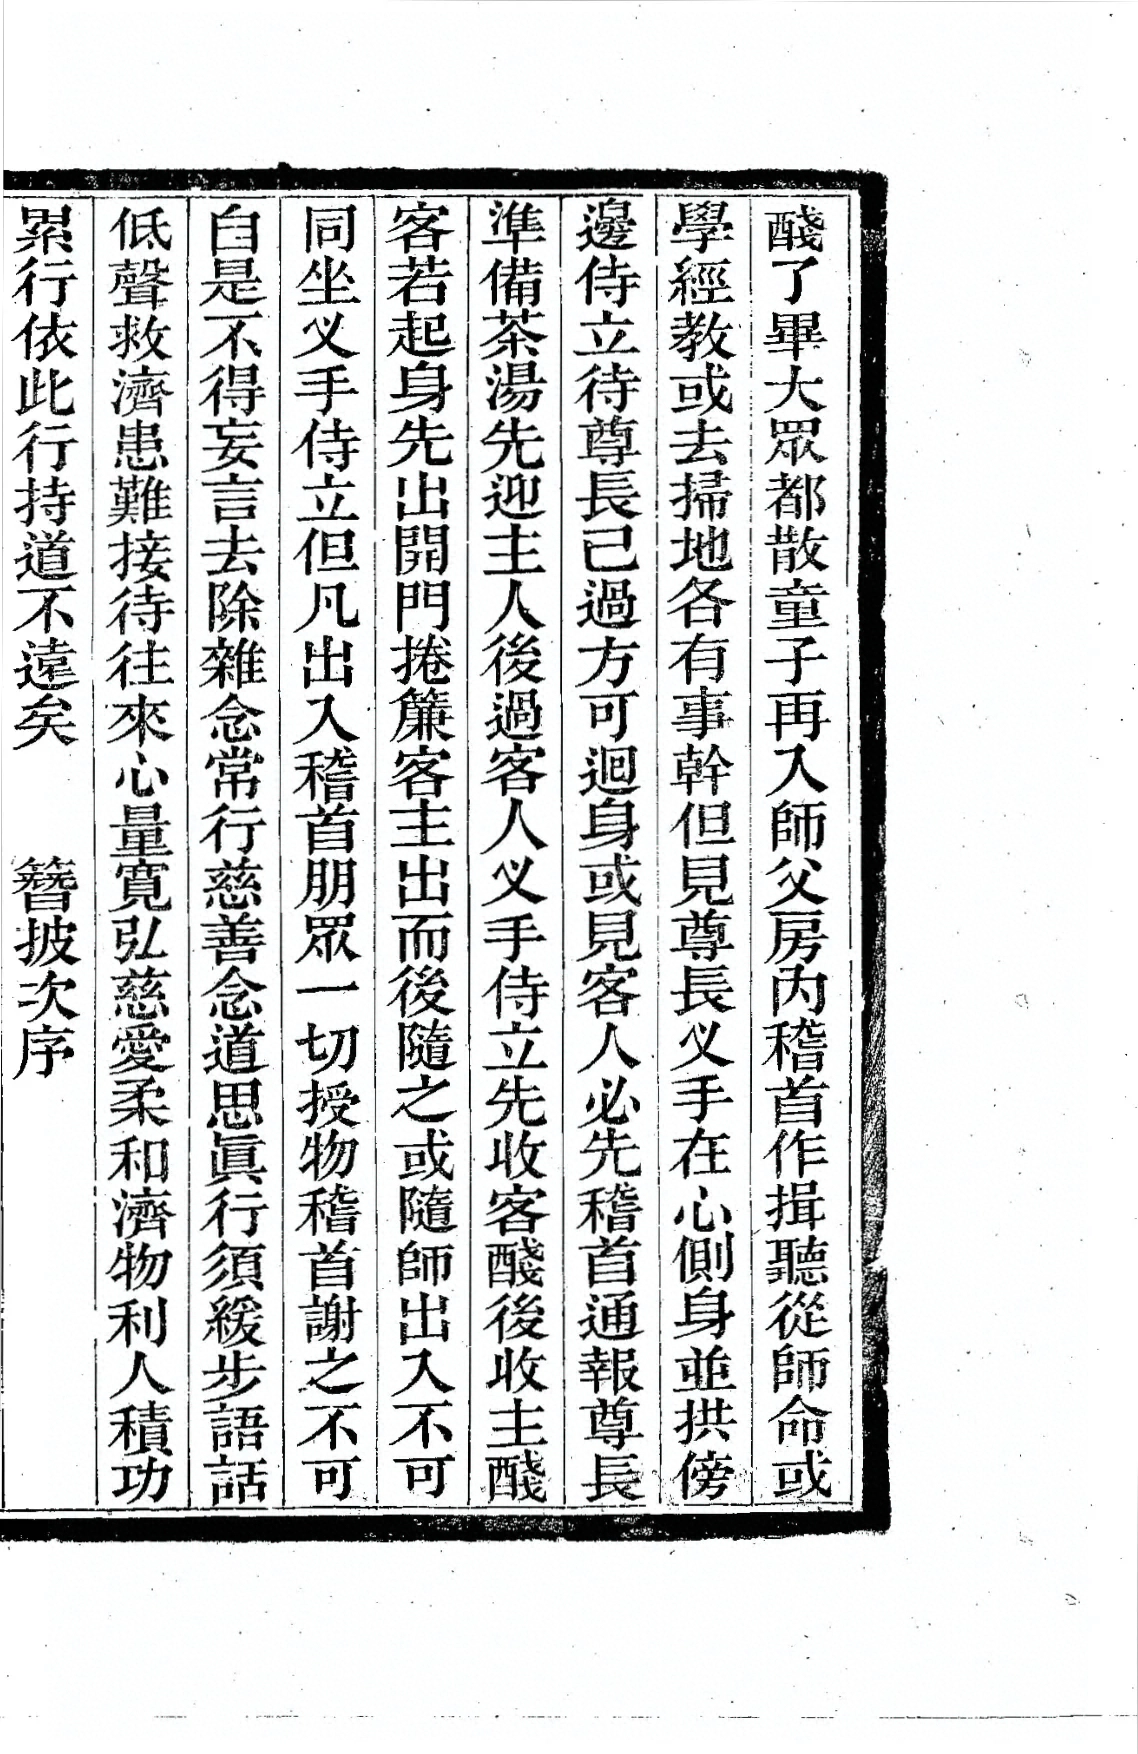 醆了畢大眾都散童子再入師父房內稽首作揖聽從師命或
學經教或去掃地各有事幹但見尊長义手在心側身並拱傍
邊侍立待尊長已過方可迴身或見客人必先稽首通報尊長
準備茶湯先迎主人後過客人义手侍立先收客醆後收主醆
客若起身先出開門捲簾客主出而後隨之或隨師出入不可
同坐义手侍立但凡出入稽首朋眾一切授物稽首謝之不可
自是不得妄言去除雜念常行慈善念道思眞行須緩步語話
低聲救濟患難接待往來心量寬弘慈愛柔和濟物利人積功
累行依此行持道不遠矣　　簪披次序